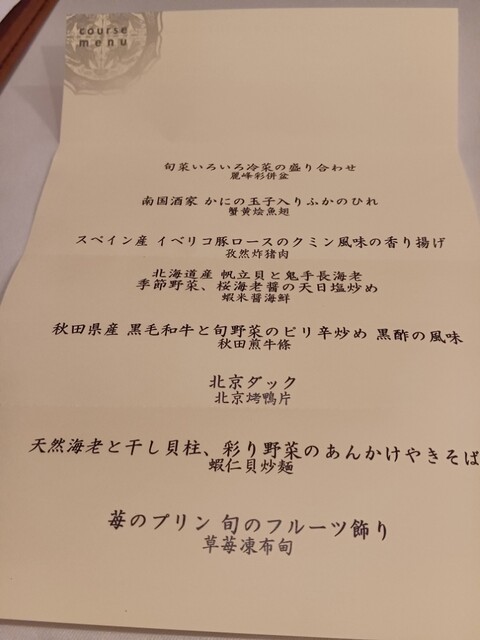 course
menu
旬菜いろいろ冷菜の盛り合わせ
麗峰彩併盆
南国酒家 かにの玉子入りふかのひれ
蟹黄烩魚翅
スペイン産 イベリコ豚ロースのクミン風味の香り揚げ
孜然炸猪肉
北海道産 帆立貝と鬼手長海老
季節野菜、桜海老醤の天日塩炒め
蝦米醤海鮮
秋田県産 黒毛和牛と旬野菜のピリ辛炒め 黒酢の風味
秋田煎牛條
北京ダック
北京烤鴨片
天然海老と干し貝柱、彩り野菜のあんかけやきそば
蝦仁貝炒麺
苺のプリン 旬のフルーツ飾り
草苺凍布甸